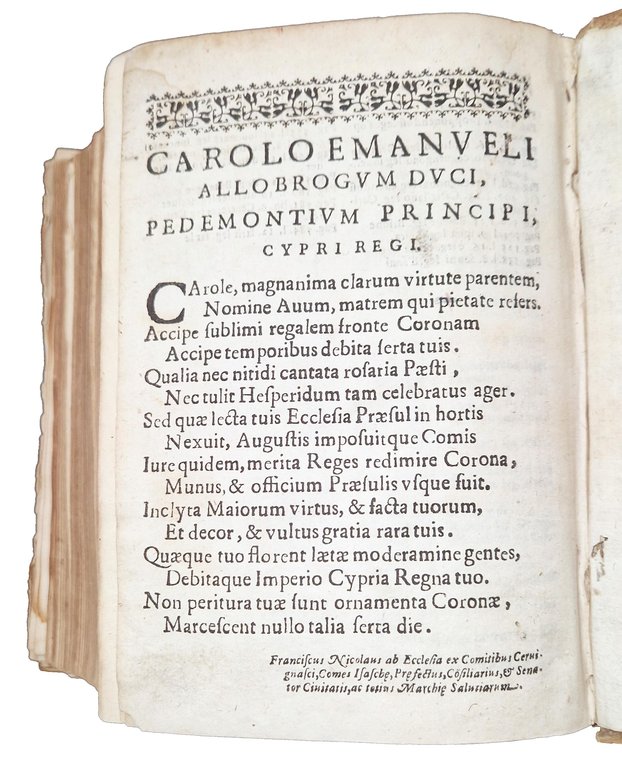 CAROLO EMANVELI
ALLOBROGVM DVCI,
PEDEMONTIVM PRINCIPI,
CYPRI REGI.
CArole, magnanima clarum virtute parentem,
Nomine Auum, matrem qui pietate refers.
Accipe ſublimi regalem fronte Coronam
Accipe temporibus debita ſerta tuis.
Qualia nec nitidi cantata roſaria Pæſti,
Nec tulit Heſperidum tam celebratus ager.
Sed quæ lecta tuis Eccleſia Præſul in hortis
Nexuit, Auguſtis impoſuitque Comis
Iure quidem, merita Reges redimire Corona,
Munus, & officium Præſulis vſque fuit.
Inclyta Maiorum virtus, & facta tuorum,
Et decor, & vultus gratia rara tuis.
Quæque tuo florent lætæ moderamine gentes,
Debitaque Imperio Cypria Regna tuo.
Non peritura tuæ ſunt ornamenta Coronæ,
Marceſcent nullo talia ſerta die.
Franciſcus Nicolaus ab Eccleſia ex Comitibus Cerui-
gnaſci, Comes Iſaſchę, Pręfectus, Cõſiliarius, & Sena-
tor Ciuitatis, ac totius Marchię Salutiarum.